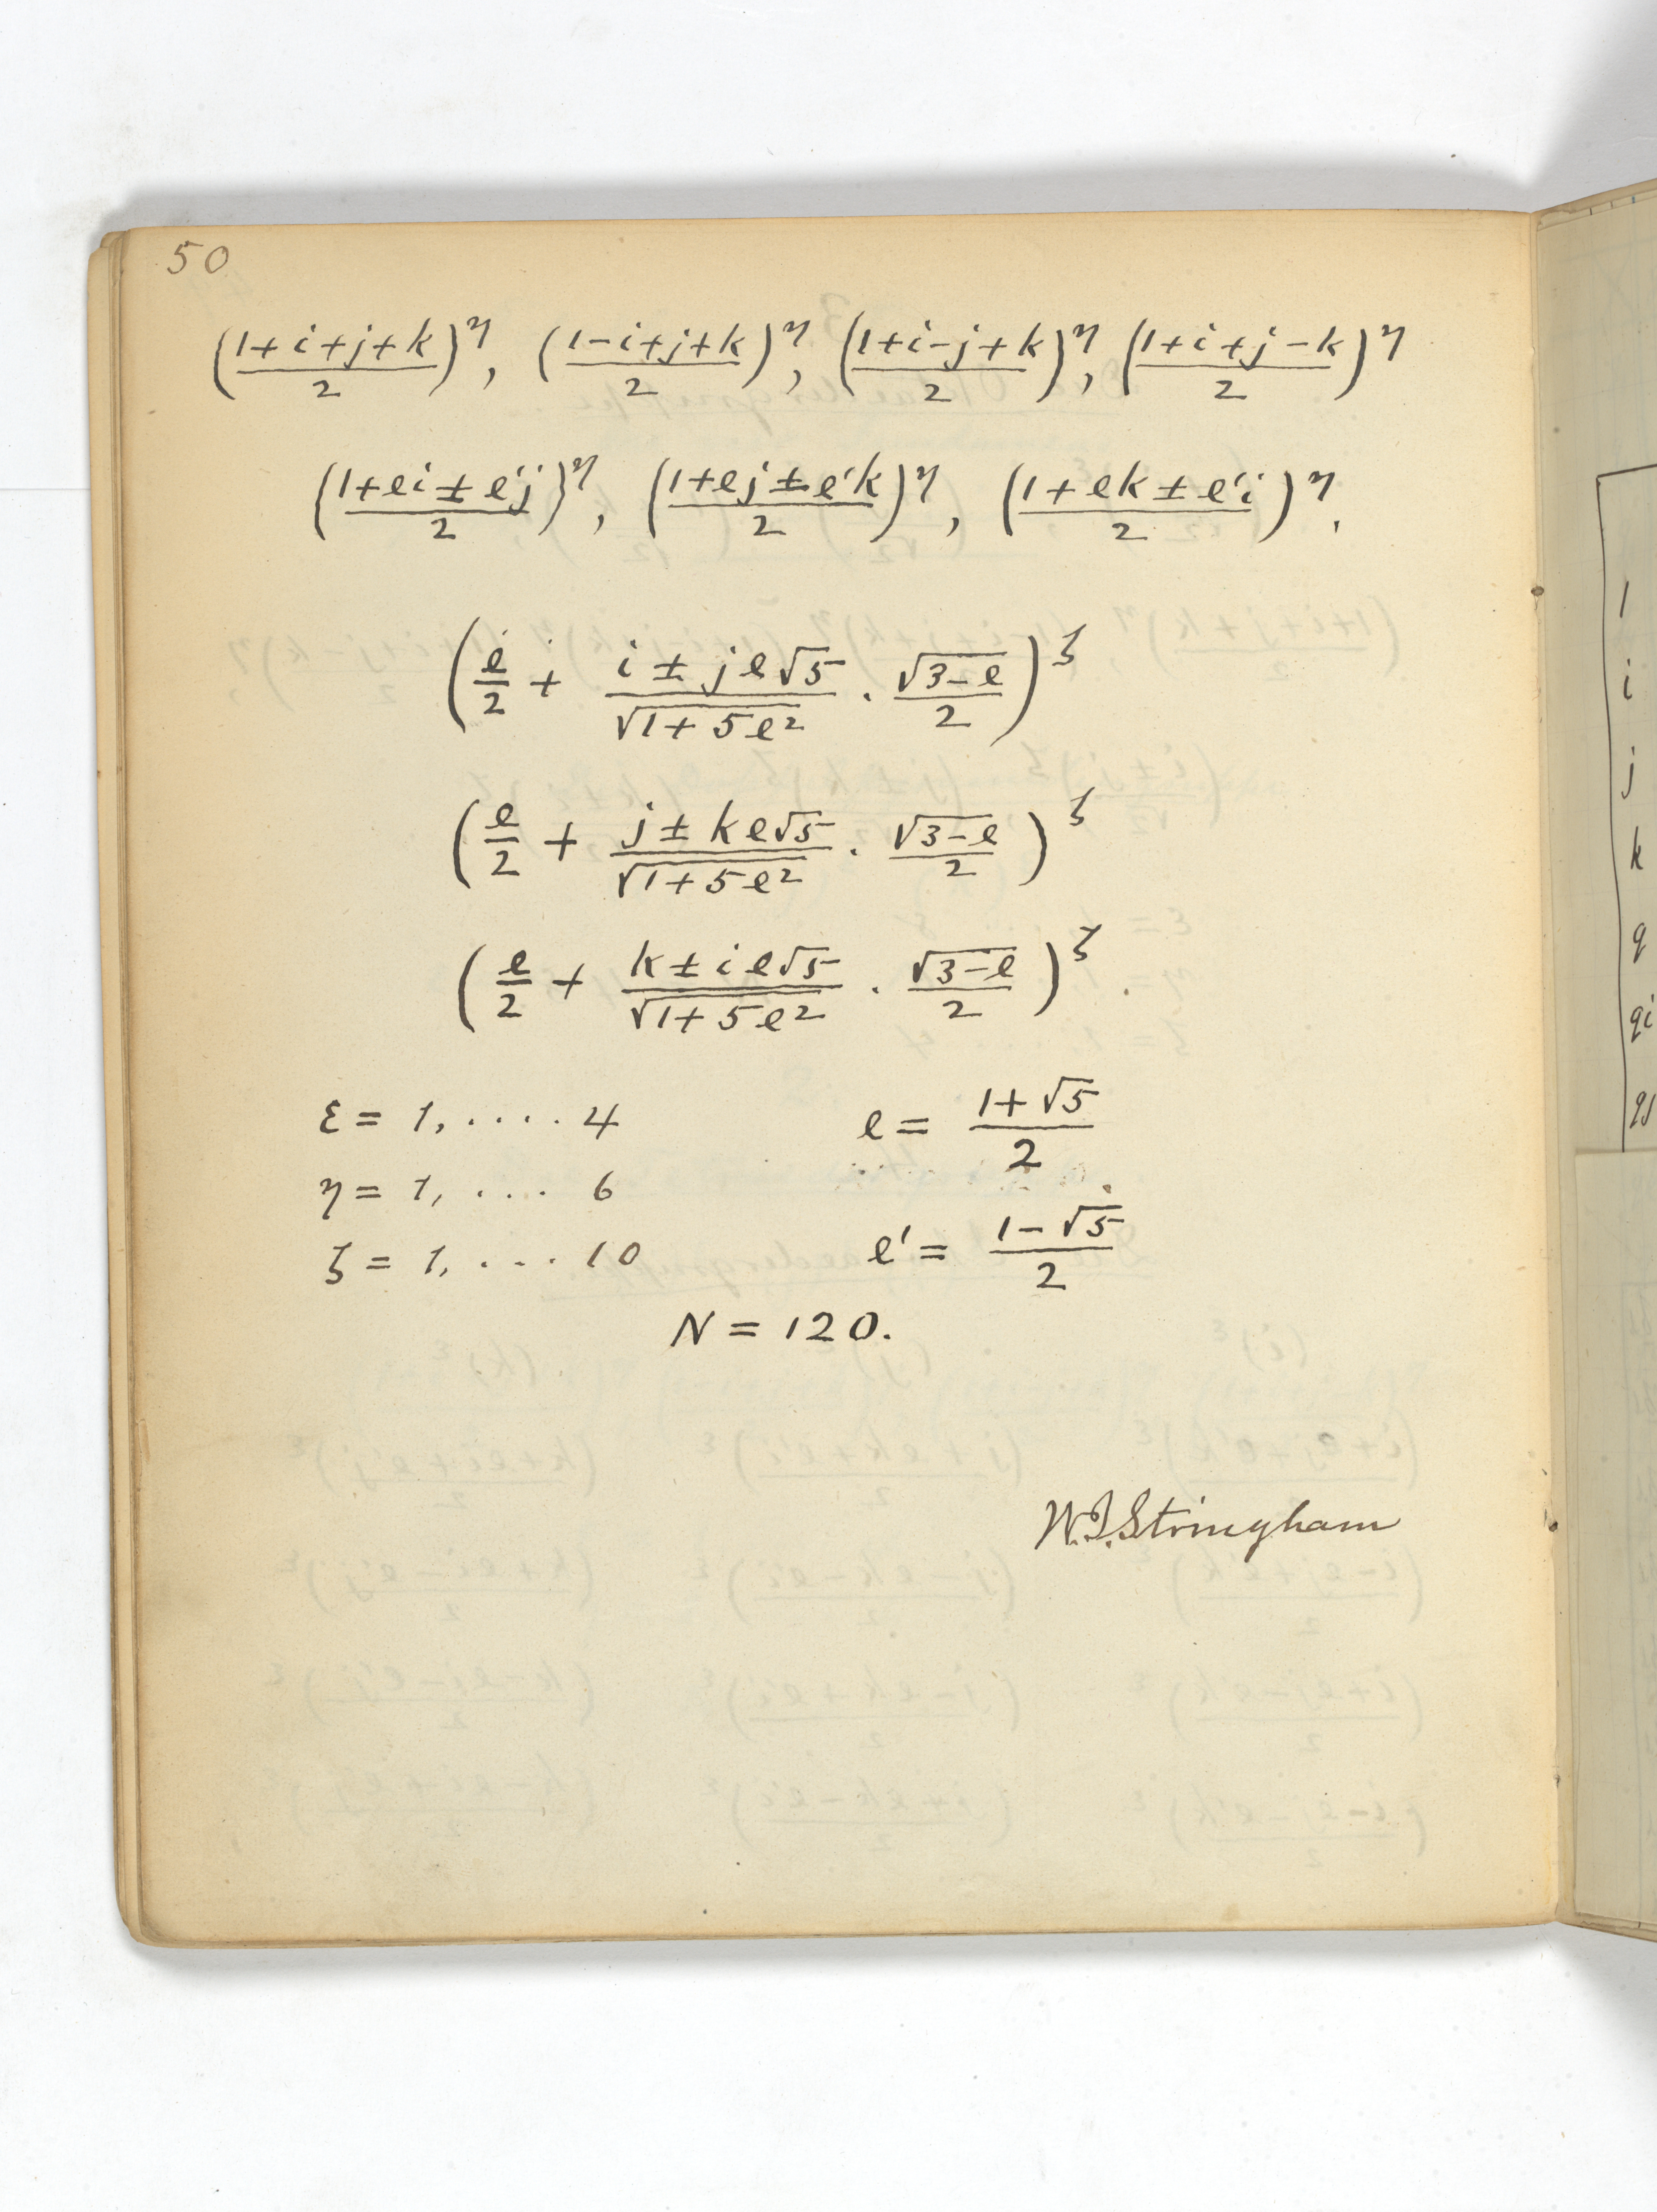 50
((1+i+j+k)/2)^η, ((1-i+j+k)/2)^η, ((1+i-j+k)/2)^η, ((1+i+j-k)/2)^η
((1+ei±e'j)/2)^η, ((1+ej±e'k)/2)^η, ((1+ek±e'i)/2)^η.
(e/2 + (i±je√5)/√(1+5e²) · √(3-e)/2)^ζ
(e/2 + (j±ke√5)/√(1+5e²) · √(3-e)/2)^ζ
(e/2 + (k±ie√5)/√(1+5e²) · √(3-e)/2)^ζ.
ε = 1, .... 4 e = (1+√5)/2
η = 1, .... 6
ζ = 1, .... 10 e' = (1-√5)/2
N = 120.
W.I. Stringham
1
i
j
k
q
qi
qj